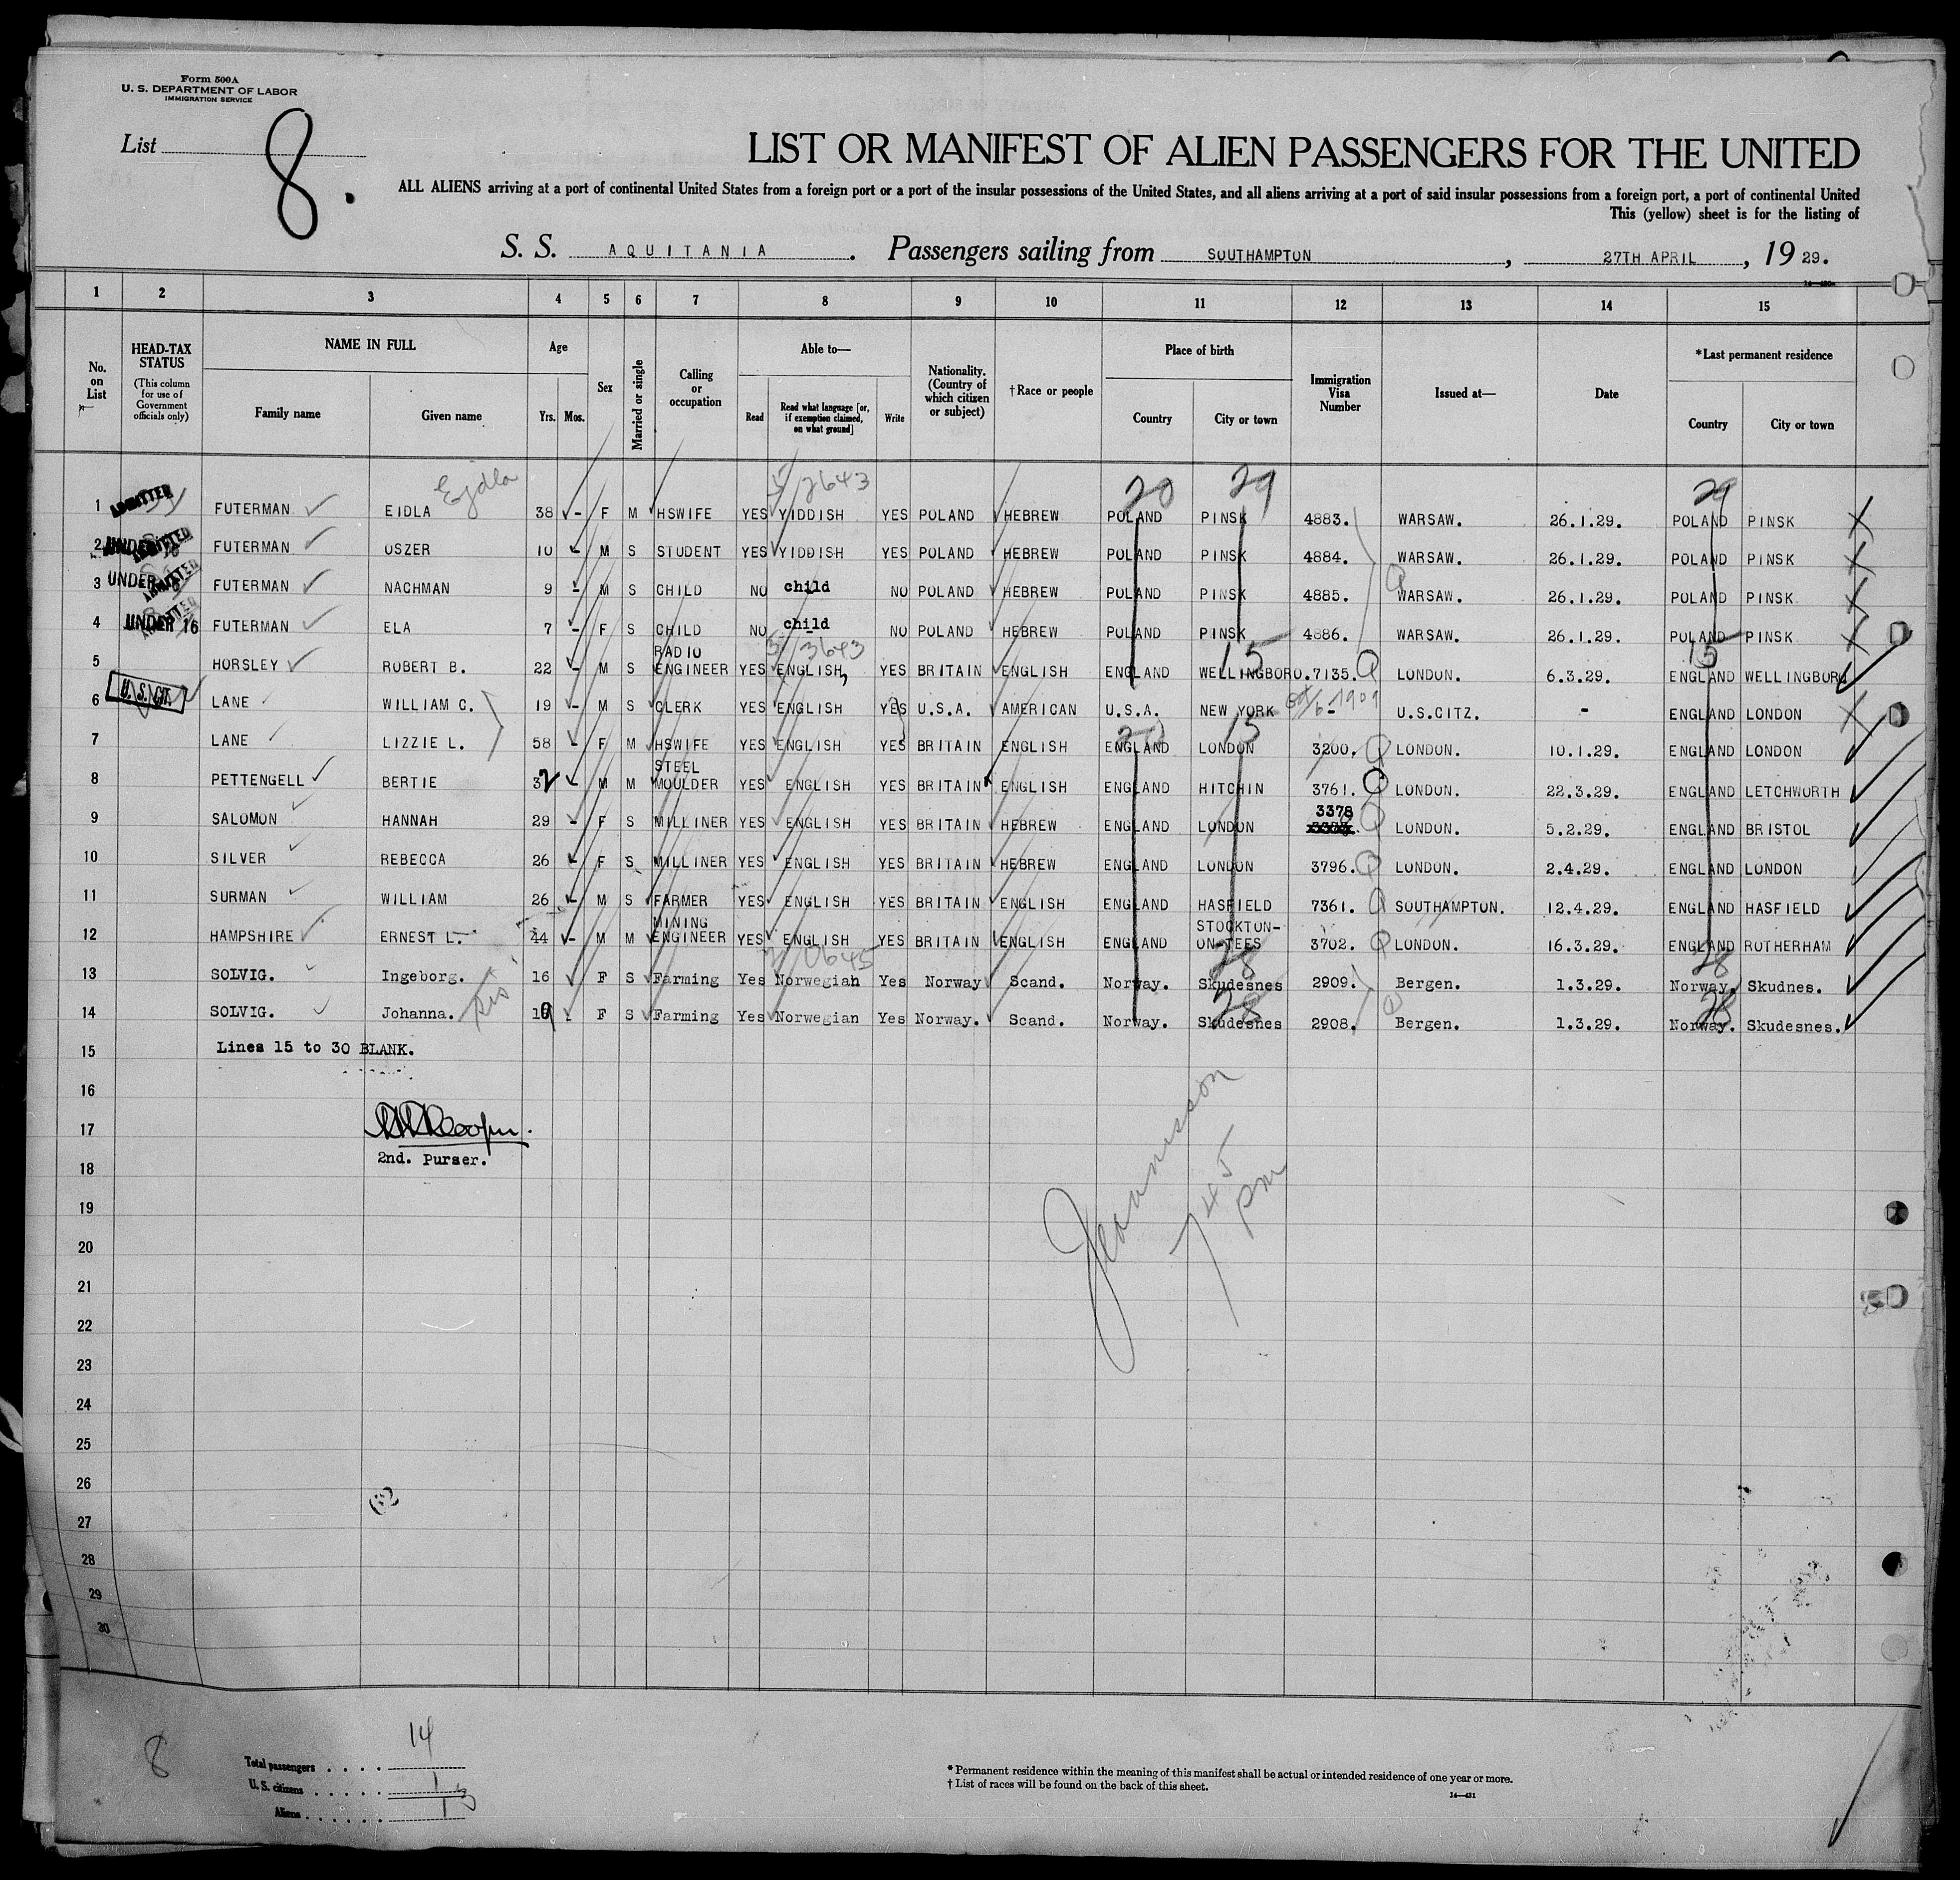 Form 500A
U. S. DEPARTMENT OF LABOR
IMMIGRATION SERVICE
List 8.
LIST OR MANIFEST OF ALIEN PASSENGERS FOR THE UNITED
ALL ALIENS arriving at a port of continental United States from a foreign port or a port of the insular possessions of the United States, and all aliens arriving at a port of said insular possessions from a foreign port, a port of continental United
This (yellow) sheet is for the listing of
S. S. AQUITANIA. Passengers sailing from SOUTHAMPTON, 27TH APRIL, 19 29.
1 2 3 4 5 6 7 8 9 10 11 12 13 14 15
No. on List
HEAD-TAX STATUS (This column for use of Government officials only)
NAME IN FULL Family name Given name
Age Yrs. Mos.
Sex
Married or single
Calling or occupation
Able to— Read Read what language [or, if exemption claimed, on what ground] Write
Nationality. (Country of which citizen or subject)
†Race or people
Place of birth Country City or town
Immigration Visa Number
Issued at—
Date
*Last permanent residence Country City or town
Ejdla 2643 20 29 29
1 ADMITTED FUTERMAN EIDLA 38 - F M HSWIFE YES YIDDISH YES POLAND HEBREW POLAND PINSK 4883. WARSAW. 26.1.29. POLAND PINSK
2 UNDER 16 ADMITTED FUTERMAN OSZER 10 - M S STUDENT YES YIDDISH YES POLAND HEBREW POLAND PINSK 4884. WARSAW. 26.1.29. POLAND PINSK
3 UNDER ADMITTED FUTERMAN NACHMAN 9 - M S CHILD NO child NO POLAND HEBREW POLAND PINSK 4885. WARSAW. 26.1.29. POLAND PINSK
4 UNDER 16 ADMITTED FUTERMAN ELA 7 - F S CHILD NO child NO POLAND HEBREW POLAND PINSK 4886. WARSAW. 26.1.29. POLAND PINSK
3643 15 15
5 HORSLEY ROBERT B. 22 - M S RADIO ENGINEER YES ENGLISH, YES BRITAIN ENGLISH ENGLAND WELLINGBORO. 7135. LONDON. 6.3.29. ENGLAND WELLINGBORO
6 U. S. CIT. LANE WILLIAM C. 19 - M S CLERK YES ENGLISH YES U.S.A. AMERICAN U.S.A. NEW YORK - U.S.CITZ. - ENGLAND LONDON
7 LANE LIZZIE L. 58 - F M HSWIFE YES ENGLISH YES BRITAIN ENGLISH ENGLAND LONDON 3200. LONDON. 10.1.29. ENGLAND LONDON
8 PETTENGELL BERTIE 32 - M M STEEL MOULDER YES ENGLISH YES BRITAIN ENGLISH ENGLAND HITCHIN 3761. LONDON. 22.3.29. ENGLAND LETCHWORTH
9 SALOMON HANNAH 29 - F S MILLINER YES ENGLISH YES BRITAIN HEBREW ENGLAND LONDON 3378 LONDON. 5.2.29. ENGLAND BRISTOL
10 SILVER REBECCA 26 - F S MILLINER YES ENGLISH YES BRITAIN HEBREW ENGLAND LONDON 3796. LONDON. 2.4.29. ENGLAND LONDON
11 SURMAN WILLIAM 26 - M S FARMER YES ENGLISH YES BRITAIN ENGLISH ENGLAND HASFIELD 7361. SOUTHAMPTON. 12.4.29. ENGLAND HASFIELD
12 HAMPSHIRE ERNEST L. 44 - M M MINING ENGINEER YES ENGLISH YES BRITAIN ENGLISH ENGLAND STOCKTON-ON-TEES 3702. LONDON. 16.3.29. ENGLAND ROTHERHAM
28 28
13 SOLVIG. Ingeborg. 16 F S Farming Yes Norwegian Yes Norway Scand. Norway. Skudesnes 2909. Bergen. 1.3.29. Norway. Skudnes.
sis 28 28
14 SOLVIG. Johanna. 19 - F S Farming Yes Norwegian Yes Norway. Scand. Norway. Skudesnes 2908. Bergen. 1.3.29. Norway. Skudesnes.
15 Lines 15 to 30 BLANK.
16
17
2nd. Purser.
18
19
20
21
22
23
24
25
26
27
28
29
30
7 45 pm
8
Total passengers . . . . 14
U. S. citizens . . . . . 1
Aliens . . . . . . 13
* Permanent residence within the meaning of this manifest shall be actual or intended residence of one year or more.
† List of races will be found on the back of this sheet.
14—431